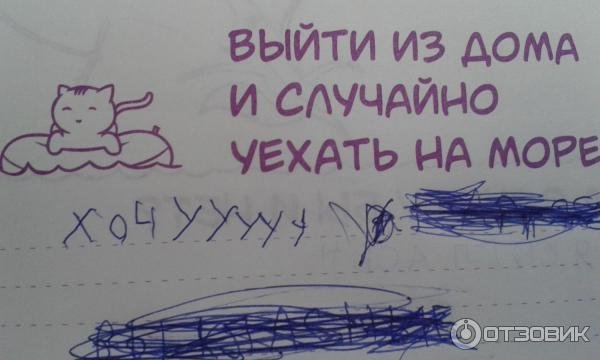 ВЫЙТИ ИЗ ДОМА
И СЛУЧАЙНО
УЕХАТЬ НА МОРЕ
ХОЧУУУУУ
ОТЗОВИК